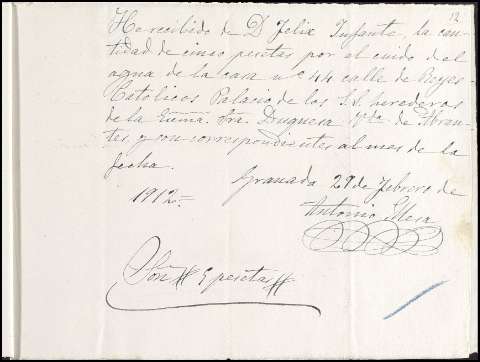 12
He recibido de D Felix Infante, la can-
tidad de cinco pesetas por el cuido del
agua de la casa nº 44 calle de Reyes
Catolicos Palacio de los S.S. herederos
de la Exma. Sra. Duquesa Vda de Abran-
tes, y son correspondientes al mes de la
fecha.
Granada 29 de Febrero de
1912=
Antonio Mesa
Son # 5 pesetas #